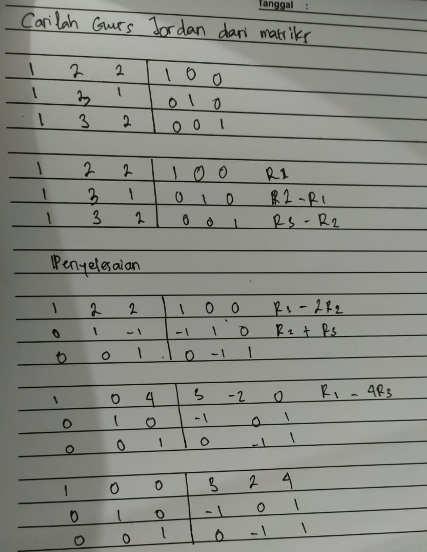 Tanggal :
Carilah Gauss Jordan dari matriks
1 2 2 | 1 0 0
1 3 1 | 0 1 0
1 3 2 | 0 0 1
1 2 2 | 1 0 0 R1
1 3 1 | 0 1 0 R2-R1
1 3 2 | 0 0 1 R3 - R2
Penyelesaian
1 2 2 | 1 0 0 R1 - 2R2
0 1 -1 | -1 1 0 R2 + R3
0 0 1 | 0 -1 1
1 0 4 | 3 -2 0 R1 - 4R3
0 1 0 | -1 0 1
0 0 1 | 0 -1 1
1 0 0 | 3 2 4
0 1 0 | -1 0 1
0 0 1 | 0 -1 1